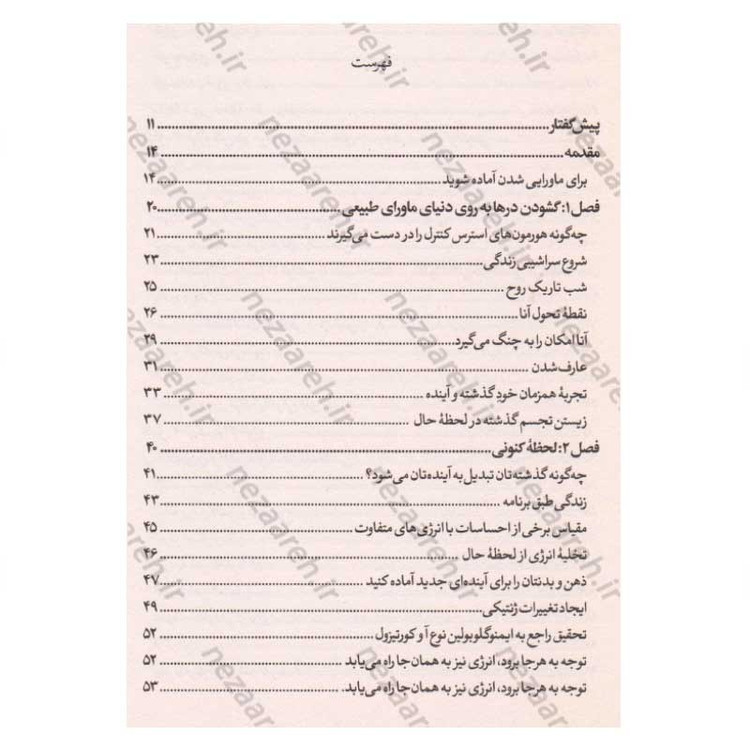 فهرست
پیش‌گفتار ........ ۱۱
مقدمه ........ ۱۴
برای ماورایی شدن آماده شوید ........ ۱۴
فصل ۱: گشودن درها به روی دنیای ماورای طبیعی ........ ۲۰
چه‌گونه هورمون‌های استرس کنترل را در دست می‌گیرند ........ ۲۱
شروع سراشیبی زندگی ........ ۲۳
شب تاریک روح ........ ۲۵
نقطهٔ تحول آنا ........ ۲۶
آنا امکان را به چنگ می‌گیرد ........ ۲۹
عارف شدن ........ ۳۱
تجربهٔ همزمان خودِ گذشته و آینده ........ ۳۳
زیستن تجسم گذشته در لحظهٔ حال ........ ۳۷
فصل ۲: لحظهٔ کنونی ........ ۴۰
چه‌گونه گذشته‌تان تبدیل به آینده‌تان می‌شود؟ ........ ۴۱
زندگی طبق برنامه ........ ۴۳
مقیاس برخی از احساسات با انرژی‌های متفاوت ........ ۴۵
تخلیهٔ انرژی از لحظهٔ حال ........ ۴۶
ذهن و بدنتان را برای آینده‌ای جدید آماده کنید ........ ۴۷
ایجاد تغییرات ژنتیکی ........ ۴۹
تحقیق راجع به ایمنوگلوبولین نوع آ و کورتیزول ........ ۵۲
توجه به هرجا برود، انرژی نیز به همان جا راه می‌یابد ........ ۵۲
توجه به هرجا برود، انرژی نیز به همان جا راه می‌یابد. ........ ۵۳
nezaareh.ir